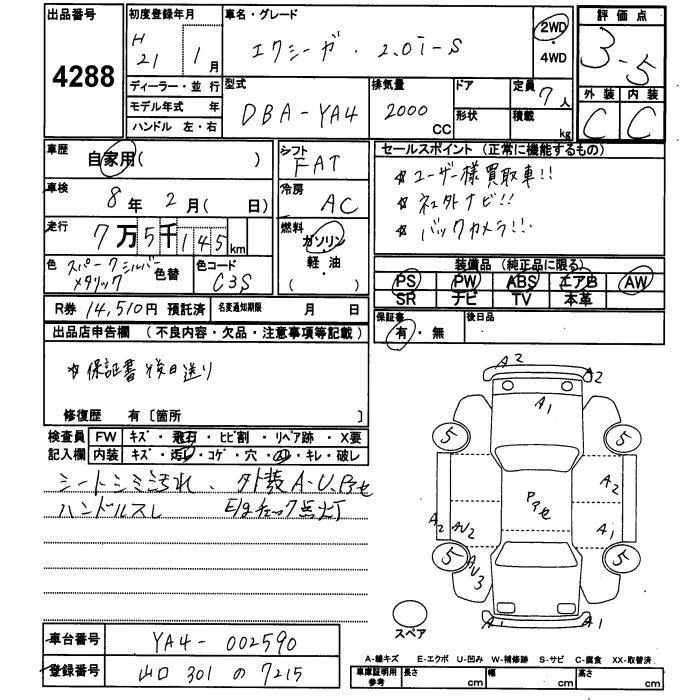 出品番号
4288
初度登録年月
H 21 1月
ディーラー・並行
モデル年式 年
ハンドル 左・右
車名・グレード
エクシーガ・2.0i-S
2WD
4WD
評価点
3-5
外装 内装
C C
型式
DBA-YA4
排気量
2000 CC
ドア
形状
定員
7人
積載 kg
車歴
自家用( )
車検
8年 2月( 日)
走行
7万5千145km
色
スパークシルバー
メタリック
色替
色コード
C3S
シフト
FAT
冷房
AC
燃料
ガソリン
軽・油
( )
セールスポイント (正常に機能するもの)
☆ユーザー様買取車!!
☆社外ナビ!!
☆バックカメラ!!
装備品 (純正品に限る)
PS PW ABS エアB AW
SR ナビ TV 本革
R券 14,510円 預託済
名変通知期限 月 日
保証書
有・無
後日品
出品店申告欄 (不良内容・欠品・注意事項等記載)
☆保証書後日送り
修復歴 有〔箇所 〕
検査員 FW キズ・飛石・ヒビ割・リペア跡・X要
記入欄 内装 キズ・汚レ・コゲ・穴・スレ・キレ・破レ
シートシミ汚れ、外装A-U.Pアセ
ハンドルスレ E/gチェック点灯
A2
A2
A1
5
5
Pアセ
A2
A2
AU2
A1
5
AU3
5
A1
A1
スペア
車台番号 YA4-002590
登録番号 山口 301 の 7215
A-線キズ E-エクボ U-凹み W-補修跡 S-サビ C-腐食 XX-取替済
車庫証明用参考 長さ cm 幅 cm 高さ cm